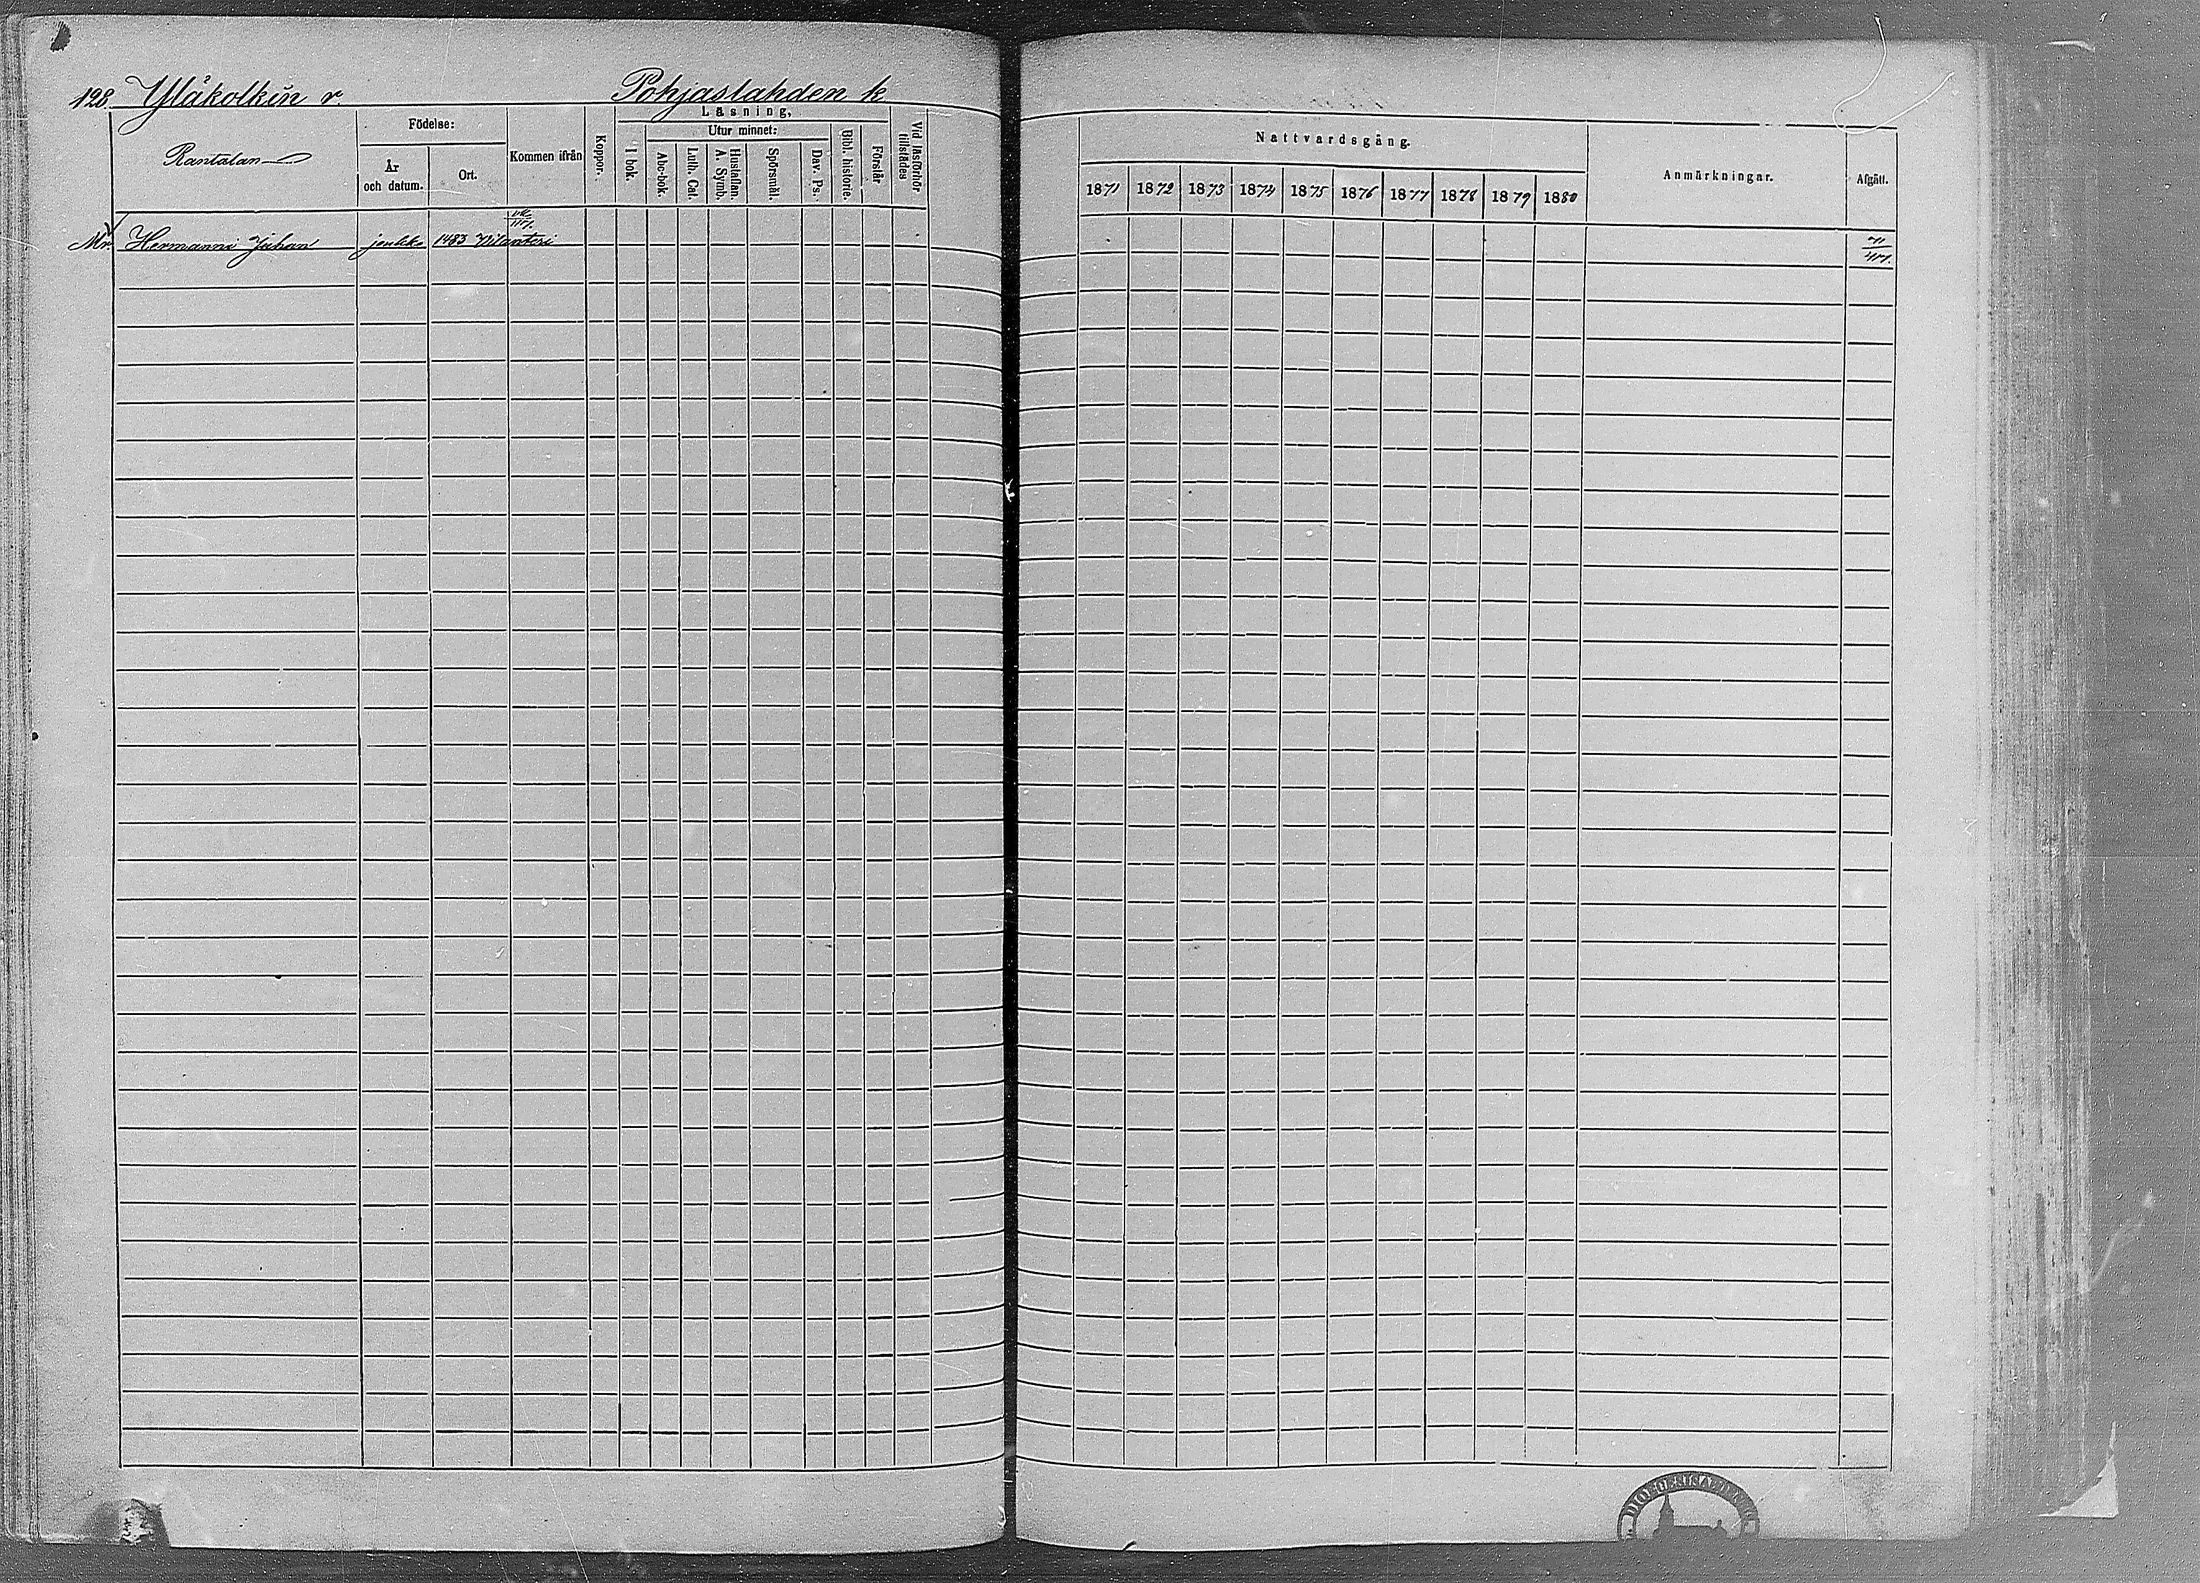 128. Yläkolkin r. Pohjaslahden k
Rantalan
Födelse:
År och datum.
Ort.
Kommen ifrån
Koppor.
Läsning,
I bok.
Utur minnet:
Abc-bok.
Luth. Cat.
Hustaflan. A. Symb.
Spörsmål.
Dav. Ps.
Bibl. historie.
Förstår
Vid läsförhör tillstädes
Nattvardsgång.
1871 1872 1873 1874 1875 1876 1877 1878 1879 1880
Anmärkningar.
Afgått.
Hermanni Juhan